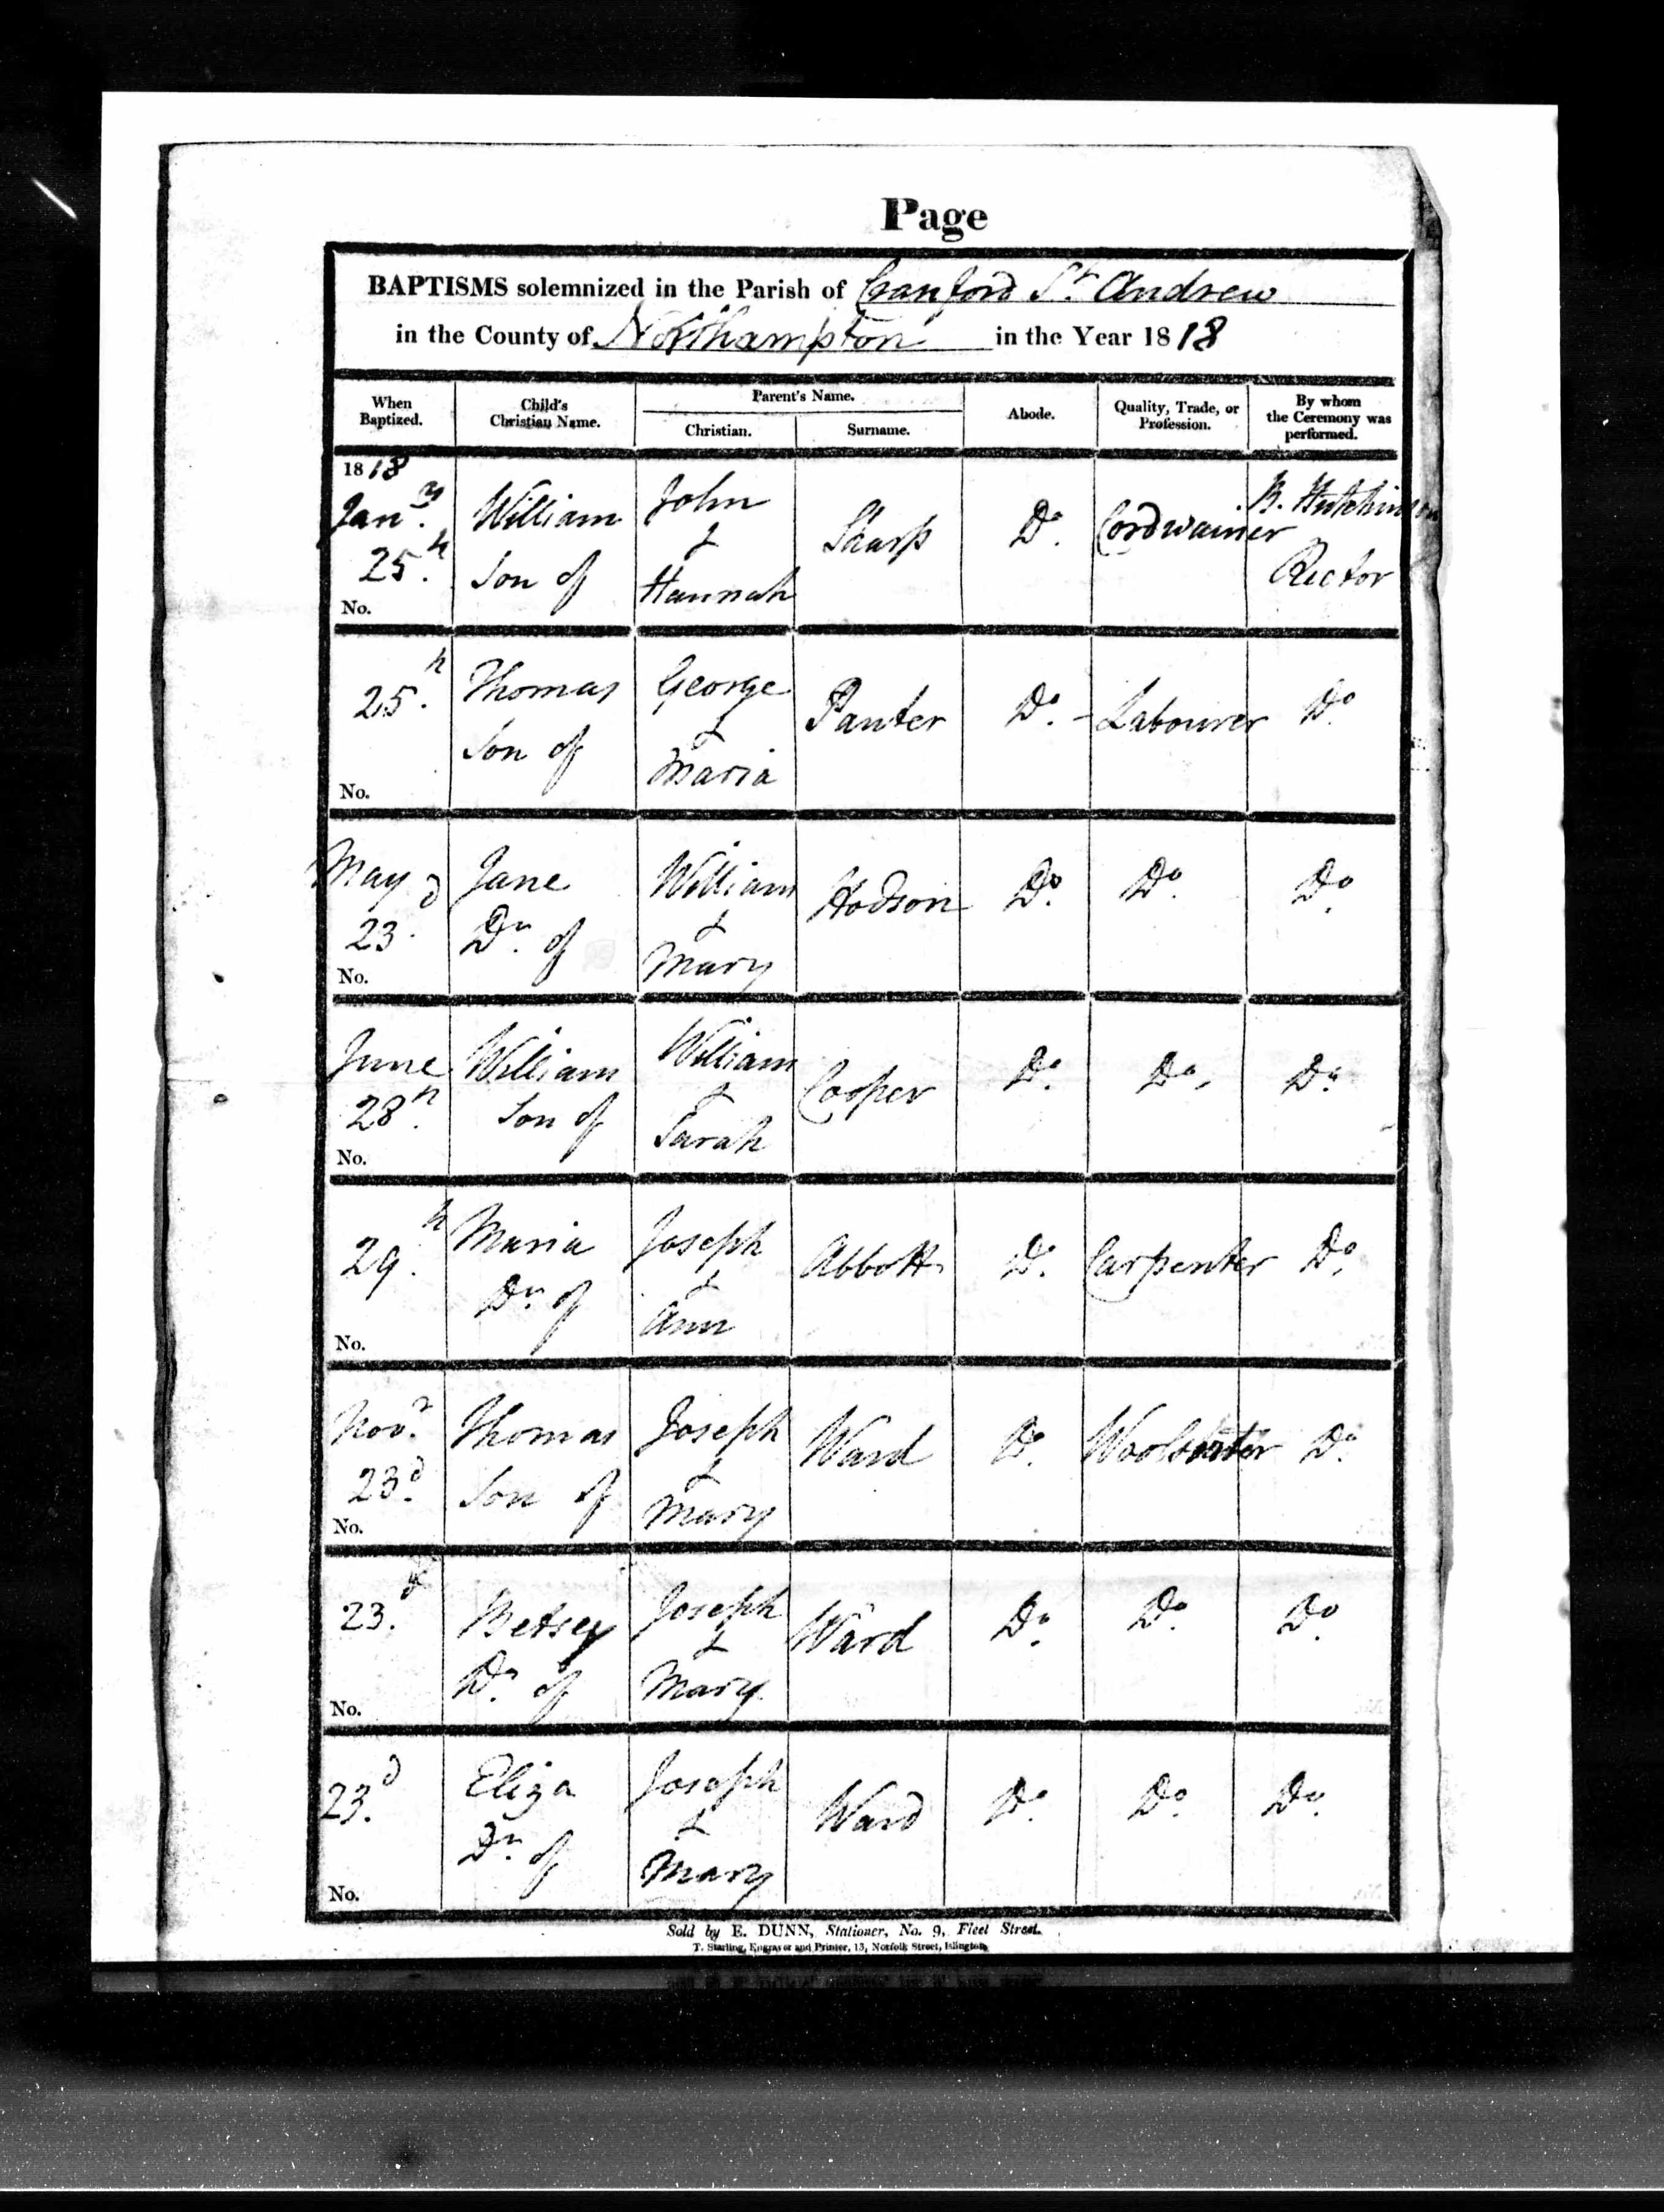 Page
BAPTISMS solemnized in the Parish of Cranford St. Andrew
in the County of Northampton in the Year 1818
When Baptized. Child's Christian Name. Parent's Name. Christian. Surname. Abode. Quality, Trade, or Profession. By whom the Ceremony was performed.
1818
Jany. 25.h William Son of John & Hannah Sharp Do. Cordwainer B. Hutchinson Rector
No.
25.h Thomas Son of George & Maria Panter Do. - Labourer Do.
No.
May 23.d Jane Dr. of William & Mary Hodson Do. Do. Do.
No.
June 28.h William Son of William & Sarah Cooper Do. Do. Do.
No.
29.h Maria Dr. of Joseph & Ann Abbott Do. Carpenter Do.
No.
Novr. 23.d Thomas Son of Joseph & Mary Ward Do. Do.
No.
23.d Betsey Dr. of Joseph & Mary Ward Do. Do. Do.
No.
23.d Eliza Dr. of Joseph & Mary Ward Do. Do. Do.
No.
Sold by E. DUNN, Stationer, No. 9, Fleet Street.
T. Starling, Engraver and Printer, 15, Norfolk Street, Islington